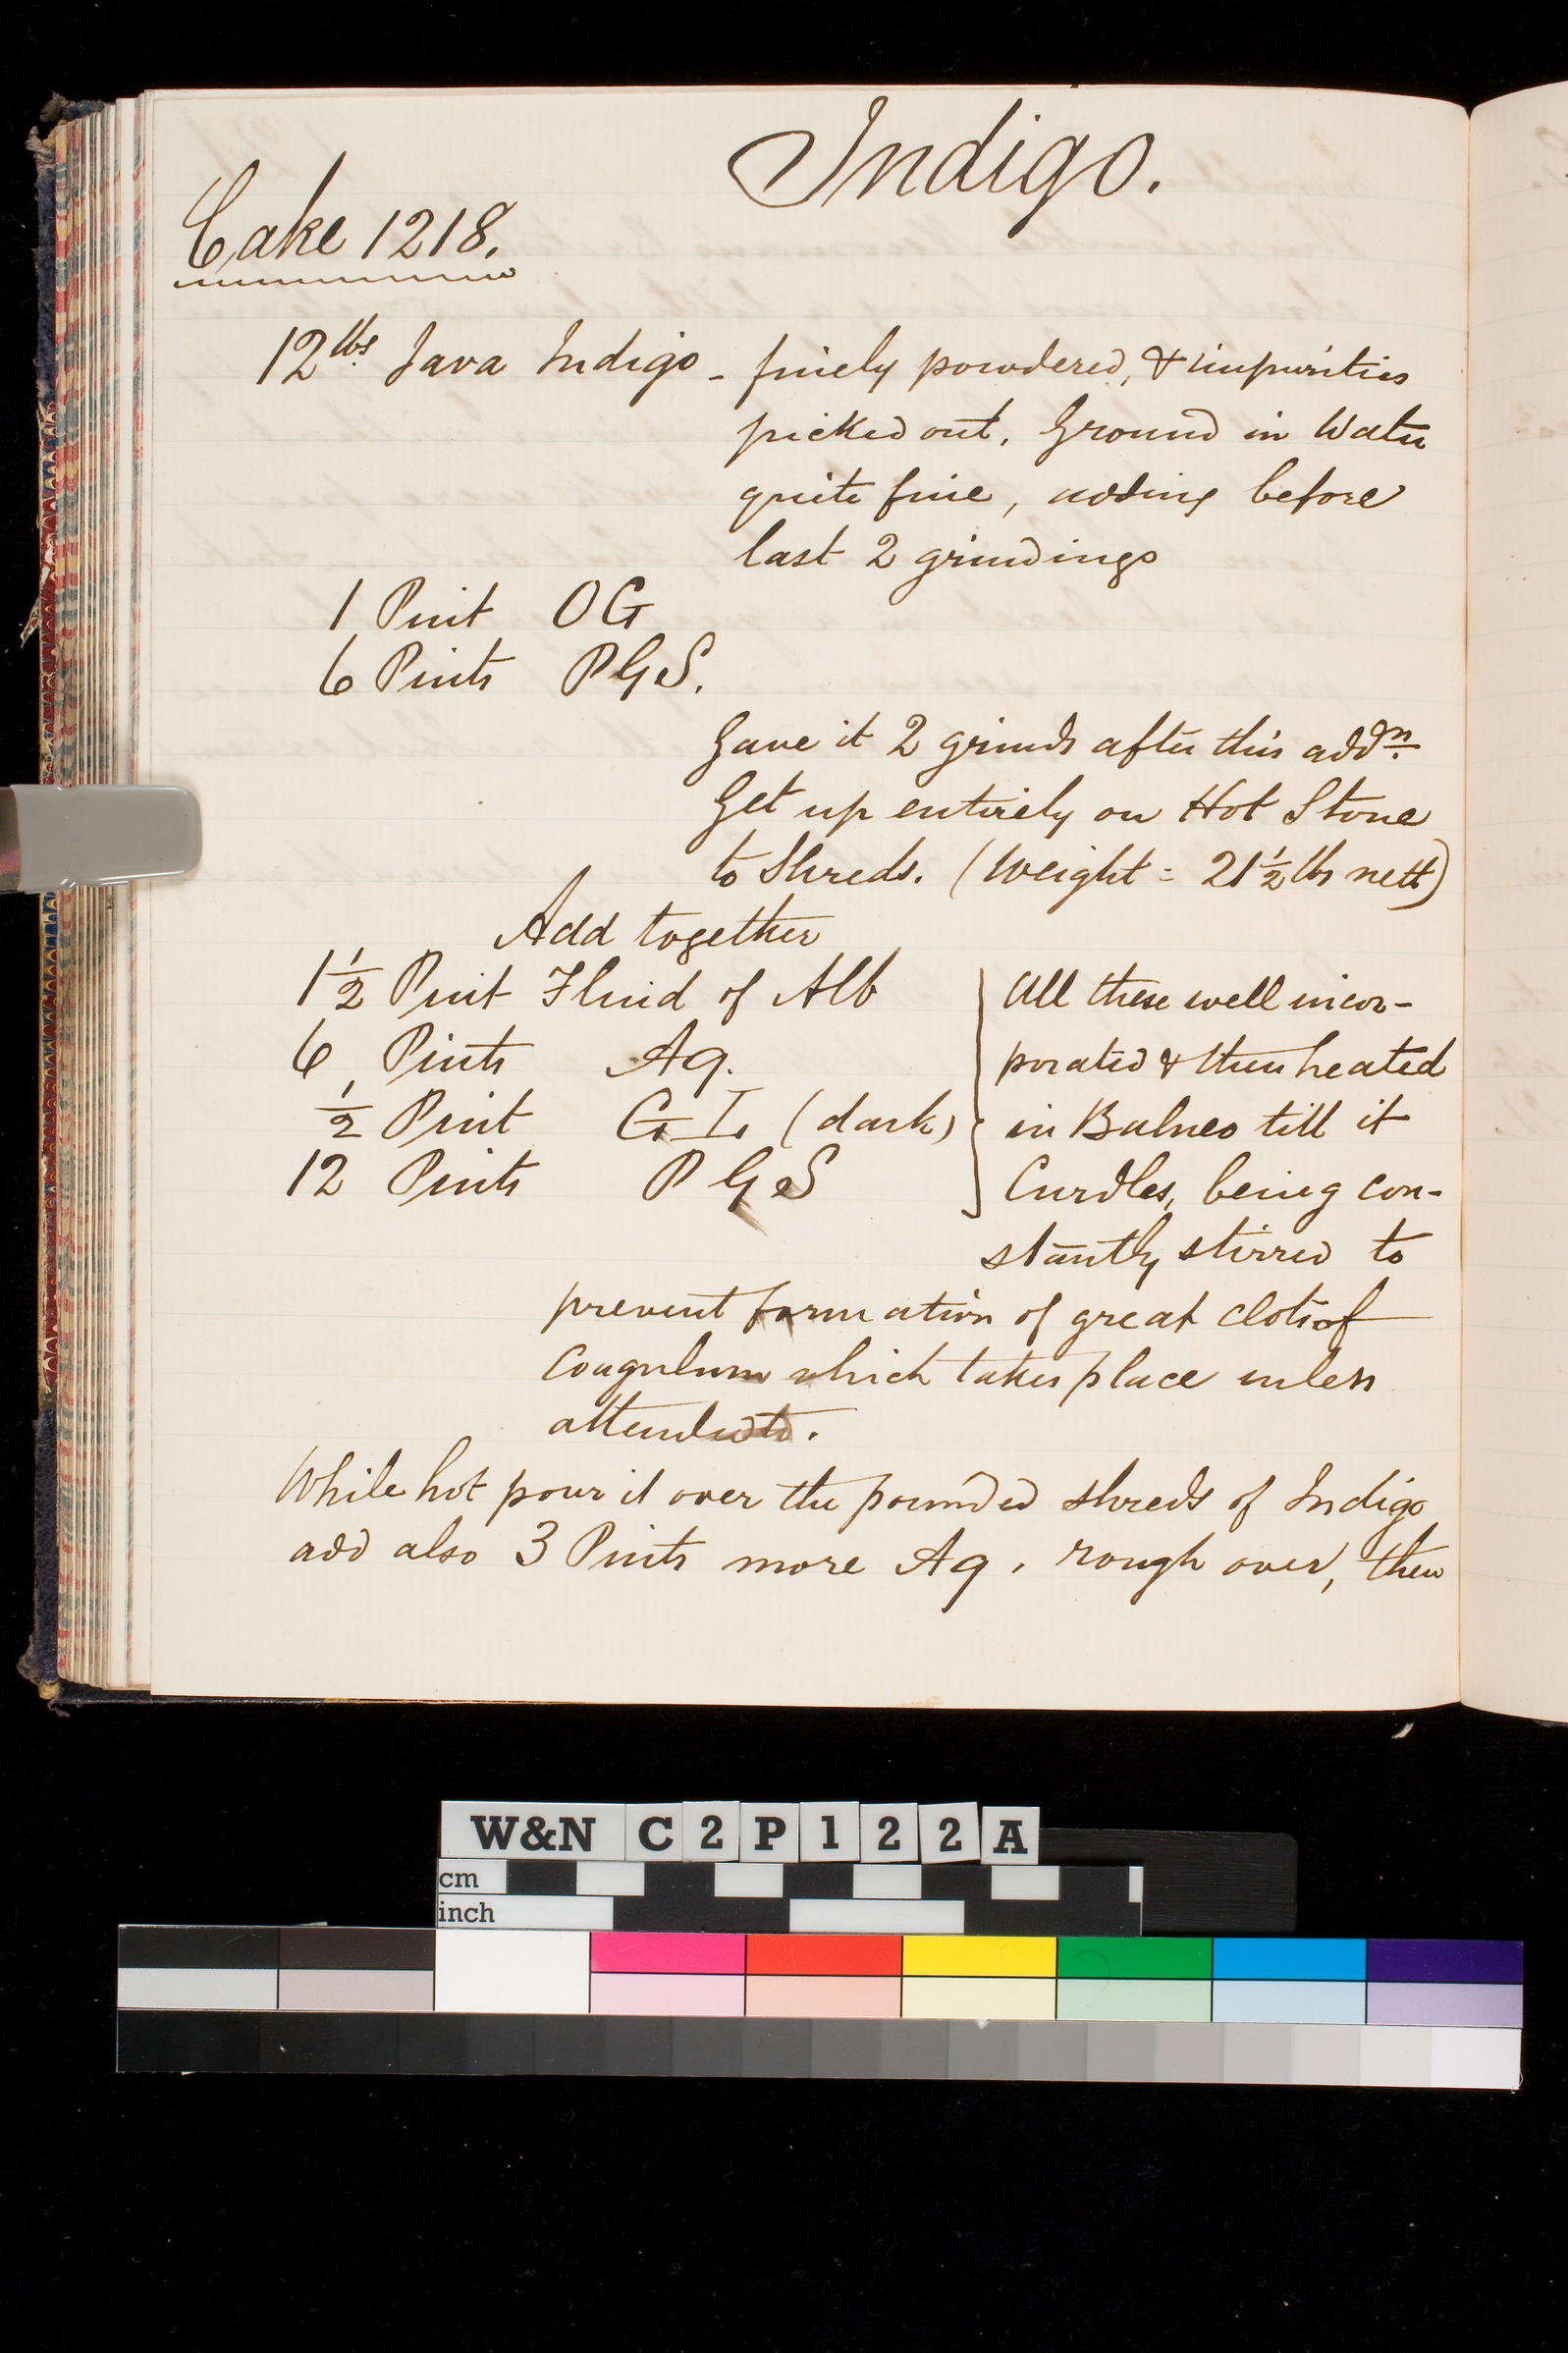 Indigo.
Cake 1218.
12 lbs. Java Indigo - finely powdered, & impurities
picked out. Ground in Water
quite fine, adding before
last 2 grindings
1 Pint OG
6 Pints PGS.
Gave it 2 grinds after this addn.
Get up entirely on Hot Stone
to Shreds. (Weight = 21½ lbs nett)
Add together
1½ Pint Fluid of Alb
All these well incor-
6 Pints Aq.
porated & then heated
½ Pint G I. (dark)
in Balneo till it
12 Pints PGS
Curdles, being con-
stantly stirred to
prevent formation of great clots of
Coagulum which takes place unless
attended to.
While hot pour it over the pounded shreds of Indigo
add also 3 Pints more Aq. rough over, then
W&N C2P122A
cm
inch